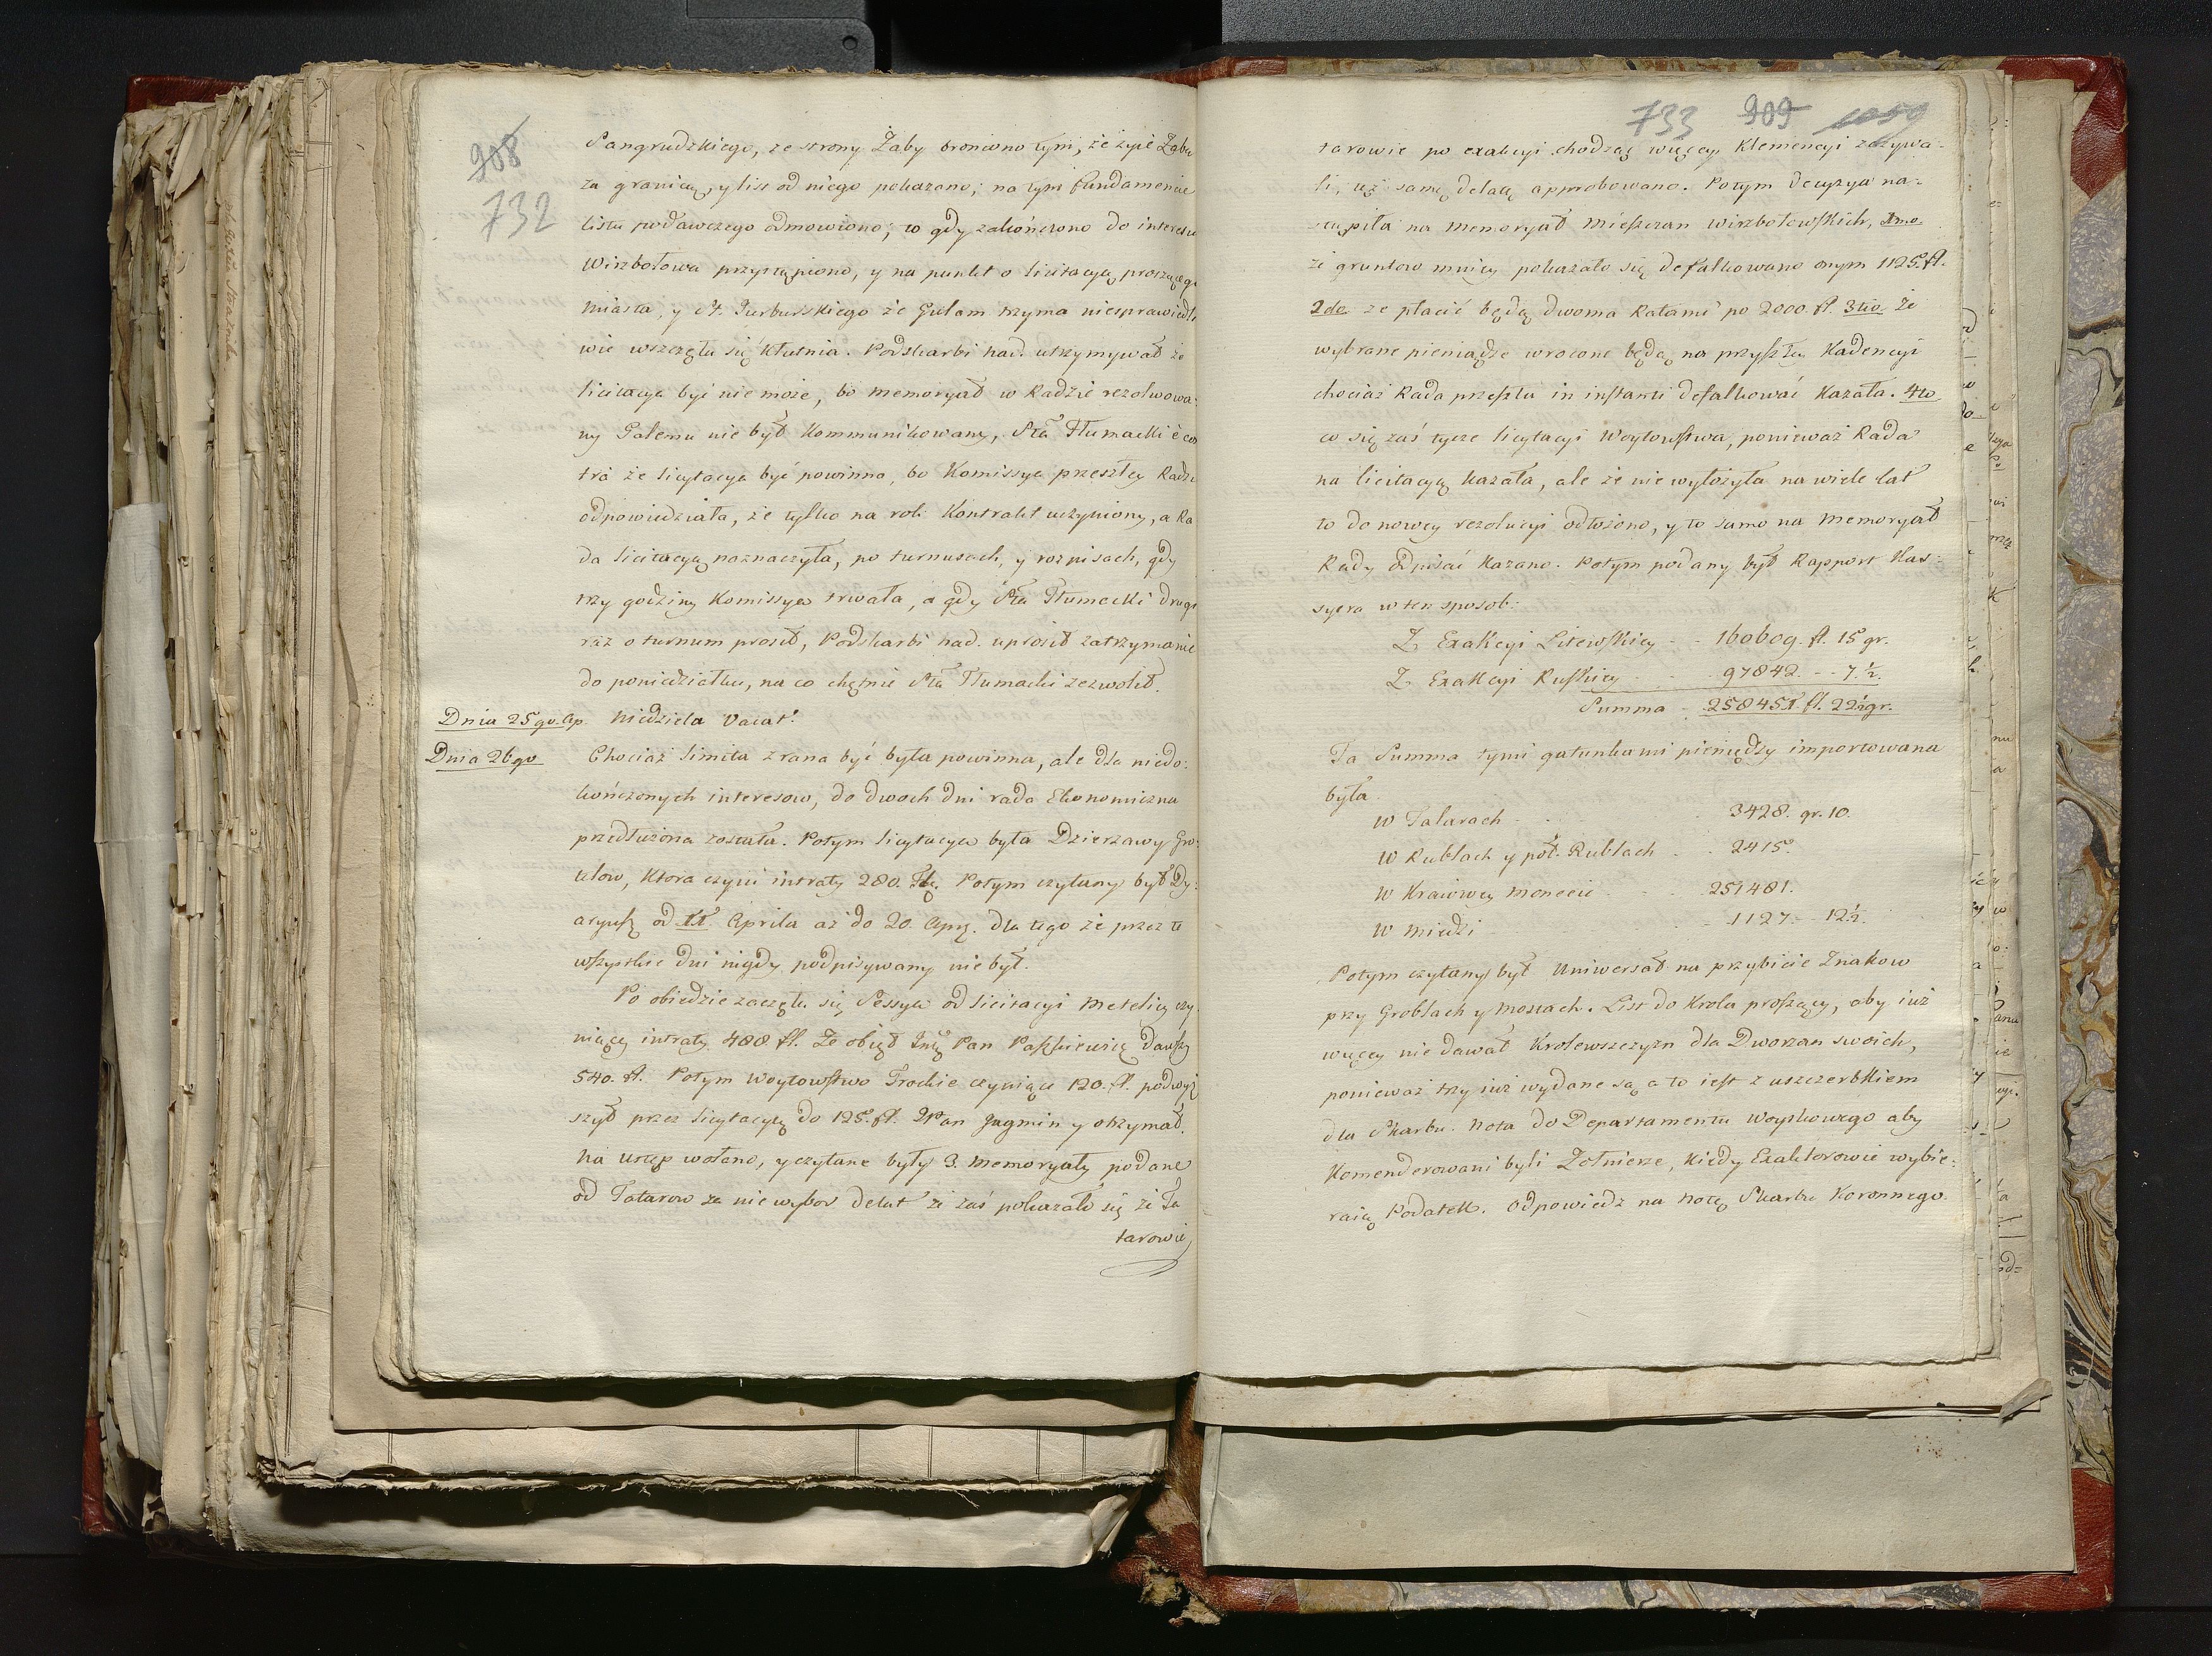 908
732
Sangrudzkiego, ze strony Żaby broniono tym, że żyie Żaba
za granicą, y list od niego pokazano; na tym fundamencie
listu podawczego odmowiono; to gdy zakończono do interesu
Wirzbołowa przystąpiono, y na punkt o licitacyą proszącego
Miasta, y Jurburskiego że trzyma niesprawiedli
wie wszczęła się kłutnia. Podskarbi nad. utrzymywał że
licitacya być nie może, bo memoryał w Radzie rezolwowa:
ny nie był kommunikowany, Sta Tłumacki è con
tra że licytacya być powinna, bo Komissya przeszłey Radzie
odpowiedziała, że tylko na rok Kontrakt uczyniony, a Ra
da licitacyą naznaczyła, po turnusach, y rozpisach, gdy
trzy godziny Komissya trwała, a gdy Sta Tłumacki drugi
raz o turnum prosił, Podskarbi nad. uprosił zatrzymanie
do poniedziałku, na co chętnie Sta Tłumacki zezwolił.
Dnia 25go. Ap. Niedziela Vacat.
Dnia 26go Chociaż limita z rana być była powinna, ale dla niedo:
kończonych interesow, do dwoch dni rada Ekonomiczna
przedłużona została. Potym licytacya była Dzierzawy Gro:
, Ktora czyni intraty 280. Potym czytany był Dy:
aryusz od Aprila aż do 20. Apr. dla tego że przez te
wszystkie dni nigdy podpisywany nie był.
Po obiedzie zaczęła się Sessya od licitacyi Metelicy czy
niącey intraty 488 fl. Ze obiął Pan Paszkiewicz dawszy
540. fl. Potym Woytowstwo Trockie czyniące 120. fl. podwyż
szył przez licytacyą do 125. fl. JPan Jugmin y otrzymał.
Na ustęp wołano, y czytane były 3. memoryały podane
od Tatarow za niewybor delat że zaś pokazało się że Ta
tarowie
733 909 1059
tarowie po exakcyi chodząc więcey Klemencyi zażywa-
li, też samę delatę approbowano. Potym decyzya na:
stąpiła na memoryał Mieszczan Wirzbołowskich, 1mo.
że gruntow mniey pokazało się defalkowano onym 1125. fl.
2do. że płacić będą dwoma Ratami po 2000. fl. 3tio. że
wybrane pieniądze wrocone będą na przyszłey Kadencyi
chociaż Rada przeszła in instanti defalkować kazała. 4to
co się zaś tycze licytacyi Woytowstwa, ponieważ Rada
na licitacyą kazała, ale że nie wyłożyła na wiele lat
to do nowey rezolucyi odłożono, y to samo na Memoryał
Rady odpisać kazano. Potym podany był Rapport Kas-
syera w ten sposob:
Z Exakcyi Litewskiey - - 160609. fl. 15 gr.
Z Exakcyi Ruskiey - - 97842. - - 7.½.
Summa - 258451 fl. 22½gr.
Ta Summa tymi gatunkami pieniędzy importowana
była
w Talarach - 3428. gr. 10.
w Rublach y poł. Rublach - 2415.
w Kraiowey monecie - 251481.
w miedzi - 1127. - 12½.
Potym czytany był Uniwersał na przybicie Znakow
przy Groblach y mostach. List do Krola proszący, aby iuż
więcey nie dawał Krolewszczyzn dla Dworzan swoich,
ponieważ trzy iuż wydane są a to iest z uszczerbkiem
dla Skarbu. Nota do Departamentu Woyskowego aby
Komenderowani byli Zołnierze, kiedy Exaktorowie wybie:
raią Podatek. Odpowiedz na notę Skarbu Koronnego.